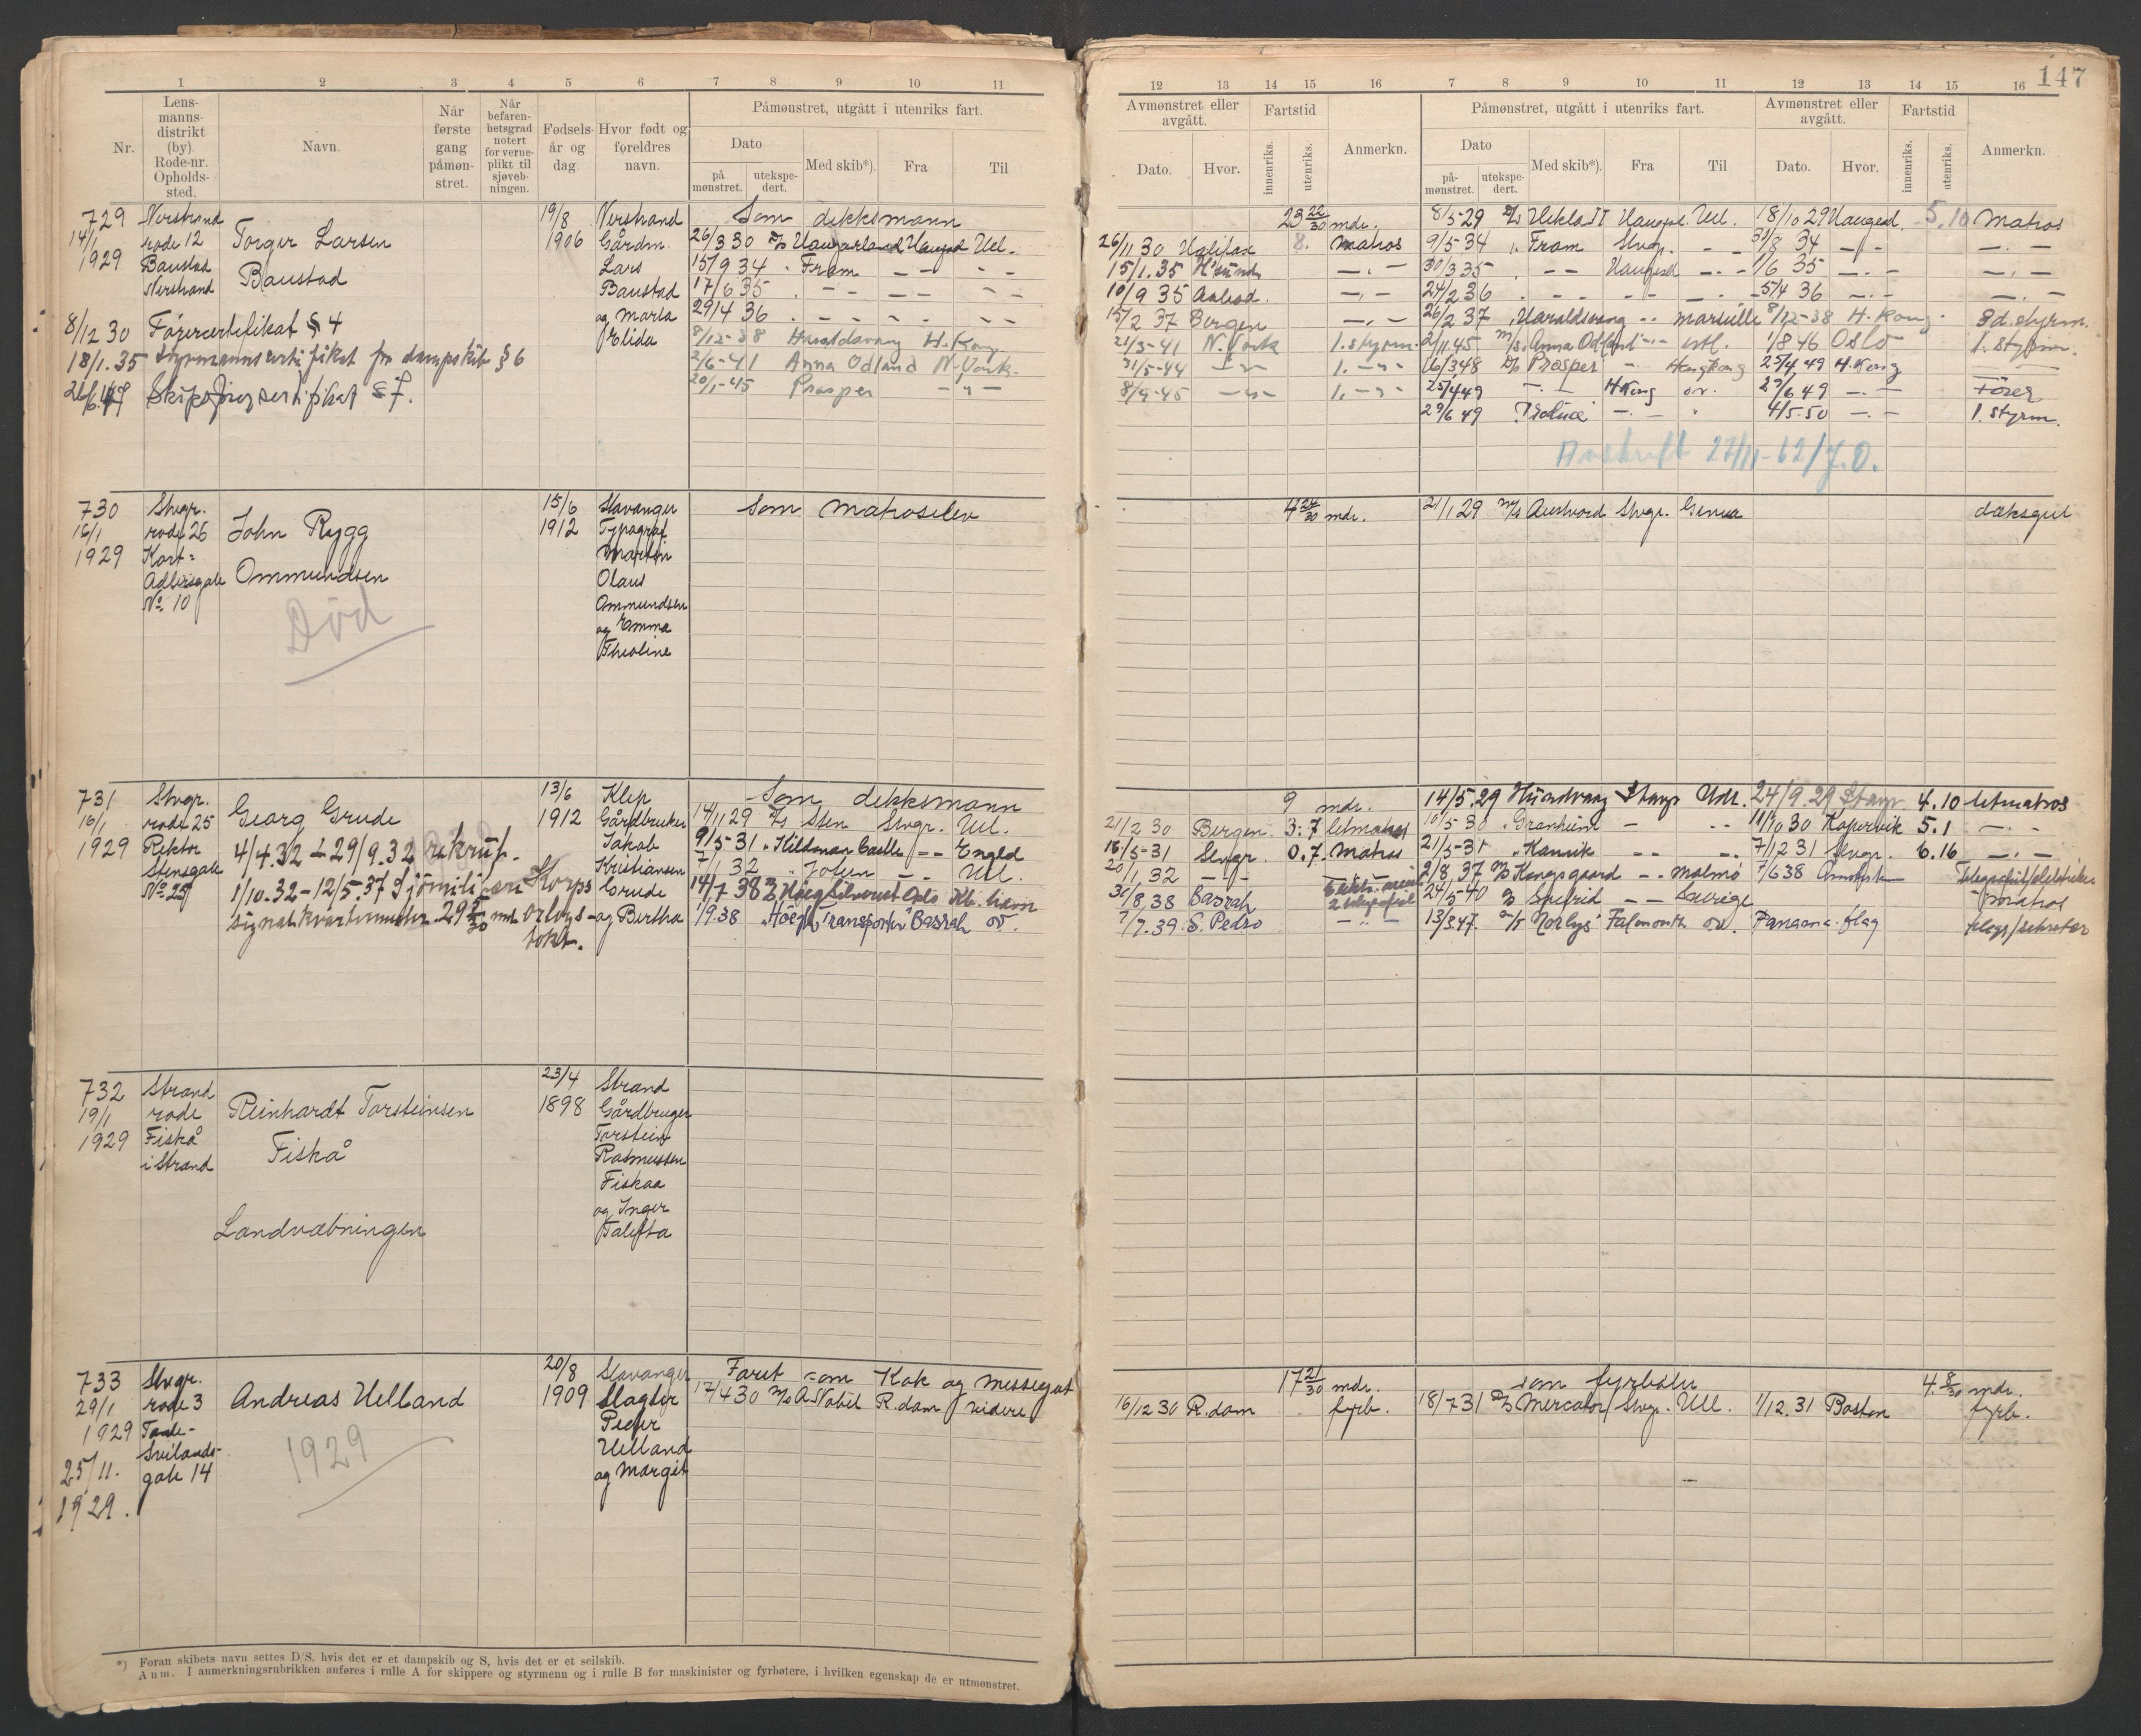 147
1 2 3 4 5 6 7 8 9 10 11
Nr.
Lens-
manns-
distrikt
(by).
Rode-nr.
Opholds-
sted.
Navn.
Når
første
gang
påmøn-
stret.
Når
befaren-
hetsgrad
notert
for verne-
plikt til
sjøveb-
ningen.
Fødsels-
år og
dag
Hvor født og
foreldres
navn.
Påmønstret, utgått i utenriks fart.
Dato
på
mønstret.
utekspe-
dert.
Med skib*).
Fra
Til
12 13 14 15 16 7 8 9 10 11 12 13 14 15 16
Avmønstret eller
avgått.
Dato.
Hvor.
Fartstid
innenriks.
utenriks.
Anmerkn.
Påmønstret, utgått i utenriks fart.
Dato
på-
mønstret.
utekspe-
dert.
Med skib*).
Fra
Til
Avmønstret eller
avgått.
Dato.
Hvor.
Fartstid
innenriks.
utenriks.
Anmerkn.
729
14/1
1929
Nerstrand
rode 12
Baustad
Nerstrand
Torger Larsen
Baustad
19/8
1906
Nerstrand
Gårdm.
Lars
Baustad
og Marta
Elida
8/12 30 Førercertifikat § 4
18/1.35 Styrmannsertifikat fra dampskib § 6
Skipsførersertifikat § 7.
Som dekksmann
26/3 30 Haugarland Haugsd Utl.
15/9 34 " Fram — — " "
17/6 35 " — — — " "
29/4 36 " — — — " "
8/12-38 Haraldsvang H. Kong
2/6-41 Anna Odland N-York
20/1-45 Prosper — " —
23 22/30 mdr.
26/11 30 Halifax 8. Matros
15/1.35 H'sund — " —
10/9 35 — " —
15/2 37 Bergen — " —
21/3-41 N. York 1. styrm.
31/5-44 — " — 1. — " —
8/9-45 — " — 1. — " —
8/5-29 D/S Hekla II Haugsd. Utl. 18/10 29 Haugesd. 5.10 Matros
9/5 34 " Fram Stvgr. — 31/8 34 — " — — " —
30/3 35 " — — Haugesd — " — 1/6 35 — " — — " —
24/2 36 " — — — — — 5/4 36 — " — — " —
26/2 37 " Haraldsvang " " Marseille 8/12-38 H. Kong 3d. styrm.
2/11.45 M/S Anna Odland — " — utl. 1/8 46 Oslo 1. styrm.
16/3 48 D/S Prosper — Hongkong 25/4 49 H. Kong
25/4 49 — " — H Kong o.v. 29/6 49 — " — Förer
29/6 49 — " — " 4/5-50 — " — 1. styrm.
Avskrift 27/11-62/J.O.
730
16/1
1929
Stvgr.
rode 26
Kort=
Adlersgate
No. 10
John Rygg
Ommundsen
Død
15/6
1912
Stavanger
Typograf
Martin
Olaus
Ommundsen
og Emma
Theoline
Som matroselev
4 24/30 mdr.
21/1 29 M/S Austvard Stvgr. Genua dæksgut
731
16/1
1929
Stvgr.
rode 25
Rektor
Stensgate
No. 25
Georg Grude
4/4.32 – 29/9.32 rekrut.
1/10.32 – 12/5.37 Sjömilitære Korps
signalkvartermester 29 5/30 mdr orlogs-
tokt.
13/6
1912
Klep
Gårdbruker
Jakob
Kristiansen
Grude
og Bertha
Som dekksmann
14/11 29 D/S Sten Stvgr. Utl.
9/5-31 " Kildman Castle — — Engld
7/1 32 " Johun — — Utl.
14/7 38 Höegh Silverset Oslo Kb. havn
1/9.38 "Höegh Transporter" Basrah ov.
9 mdr.
21/2 30 Bergen. 3.7 letmatros
16/5-31 Stvgr. 0.7. Matros
20/1 32 — " — — " —
30/8 38 Basrah
7/7.39. S. Pedro — " —
14/5.29 Hundvaag Stavgr Udl. 24/9.29 Stavgr 4.10 letmatros
10/5-30 " Granheim — " " 11/10 30 Kopervik 5.1 — " —
21/5-31 " Hanvik — — — " 7/12 31 Stvgr. 6.16 — " —
2/8 37 M/S Kongsgaard — " Malmö 7/6 38
24/5-40 D/S Snefrid — — Sverige matros
13/3.47. "Norlys" Falmouth o.v. Panama flag telegr/sekretær
732
19/1
1929
Strand
rode
Fiskå
i Strand
Reinhardt Torsteinsen
Fiskå
Landvæbningen
23/4
1898
Strand
Gårdbruger
Torstein
Rasmussen
Fiskaa
og Inger
Talefta
733
29/1
1929
25/11.
1929.
Stvgr.
rode 3
Tasle-
Svilands-
gate 14
Andreas Helland
1929
20/8
1909
Stavanger
Slagter
Peder
Helland
og Margit
Faret som Kok og messegut
17/4 30 M/S A. Nobel R.dam videre
17 21/30 mdr.
16/12 30 R.dam fyrb.
som fyrbøter 4. 8/30 mdr.
18/7 31 D/S Mercator Stvgr. Utl. 1/12.31 Boston fyrb.
*) Foran skibets navn settes D/S, hvis det er et dampskib og S, hvis det er et seilskib.
Anm. I anmerkningsrubrikken anføres i rulle A for skippere og styrmenn og i rulle B for maskinister og fyrbøtere, i hvilken egenskap de er utmønstret.